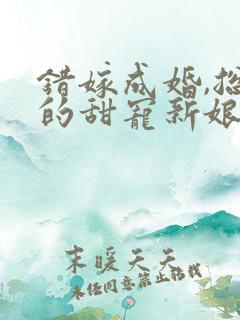 錯嫁成婚,
的甜寵新娘
末暖天天
未经同意禁止转载